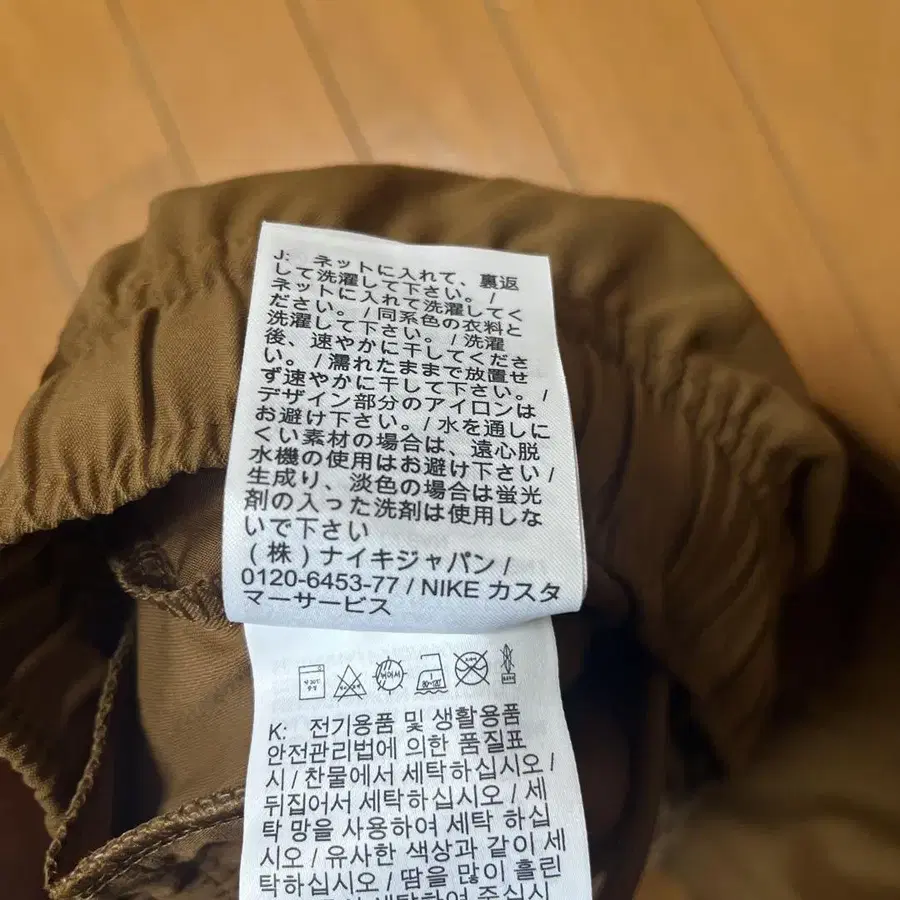 J: ネットに入れて、裏返
して洗濯して下さい。/
ネットに入れて洗濯してく
ださい。/ 同系色の衣料と
洗濯して下さい。/ 洗濯
後、速やかに干してくださ
い。/ 濡れたままで放置せ
ず速やかに干して下さい。/
デザイン部分のアイロンは
お避け下さい。/ 水を通しに
くい素材の場合は、遠心脱
水機の使用はお避け下さい /
生成り、淡色の場合は蛍光
剤の入った洗剤は使用しな
いで下さい
(株) ナイキジャパン /
0120-6453-77 / NIKE カスタ
マーサービス
K: 전기용품 및 생활용품
안전관리법에 의한 품질표
시 / 찬물에서 세탁하십시오 /
뒤집어서 세탁하십시오 / 세
탁 망을 사용하여 세탁 하십
시오 / 유사한 색상과 같이 세
탁하십시오 / 땀을 많이 흘린